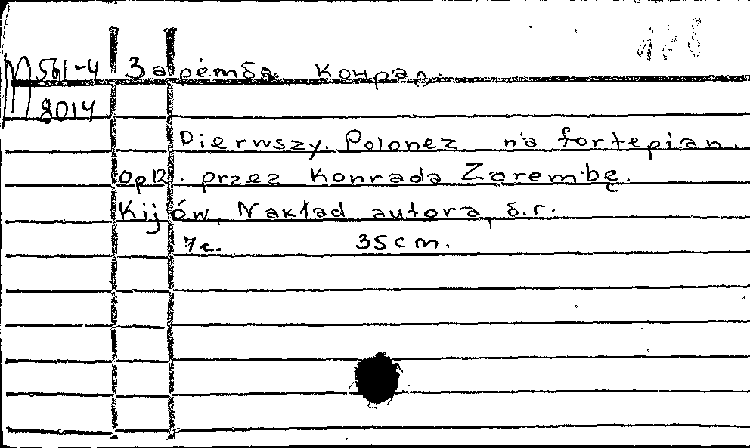 М 561-4 Заремба Конрад.
8014
Pierwszy Polonez na fortepian.
Op 12. przez Konrada Zarembę.
Kijów, Nakład autora, б.г.
7 с. 35 cm.